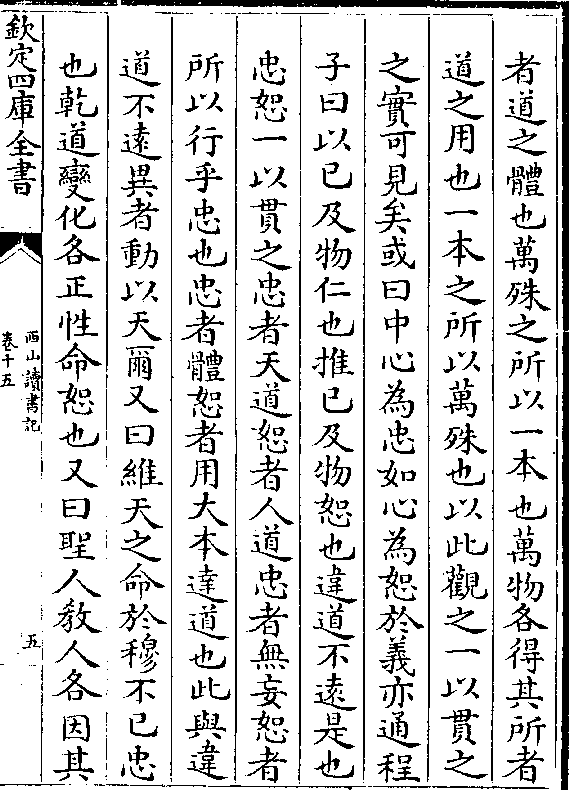 者道之體也萬殊之所以一本也萬物各得其所者
道之用也一本之所以萬殊也以此觀之一以貫之
之實可見矣或曰中心為忠如心為恕於義亦通程
子曰以已及物仁也推已及物恕也違道不遠是也
忠恕一以貫之忠者天道恕者人道忠者無妄恕者
所以行乎忠也忠者體恕者用大本達道也此與違
道不遠異者動以天爾又曰維天之命於穆不已忠
也乾道變化各正性命恕也又曰聖人教人各因其
欽定四庫全書
西山讀書記
卷十五
五